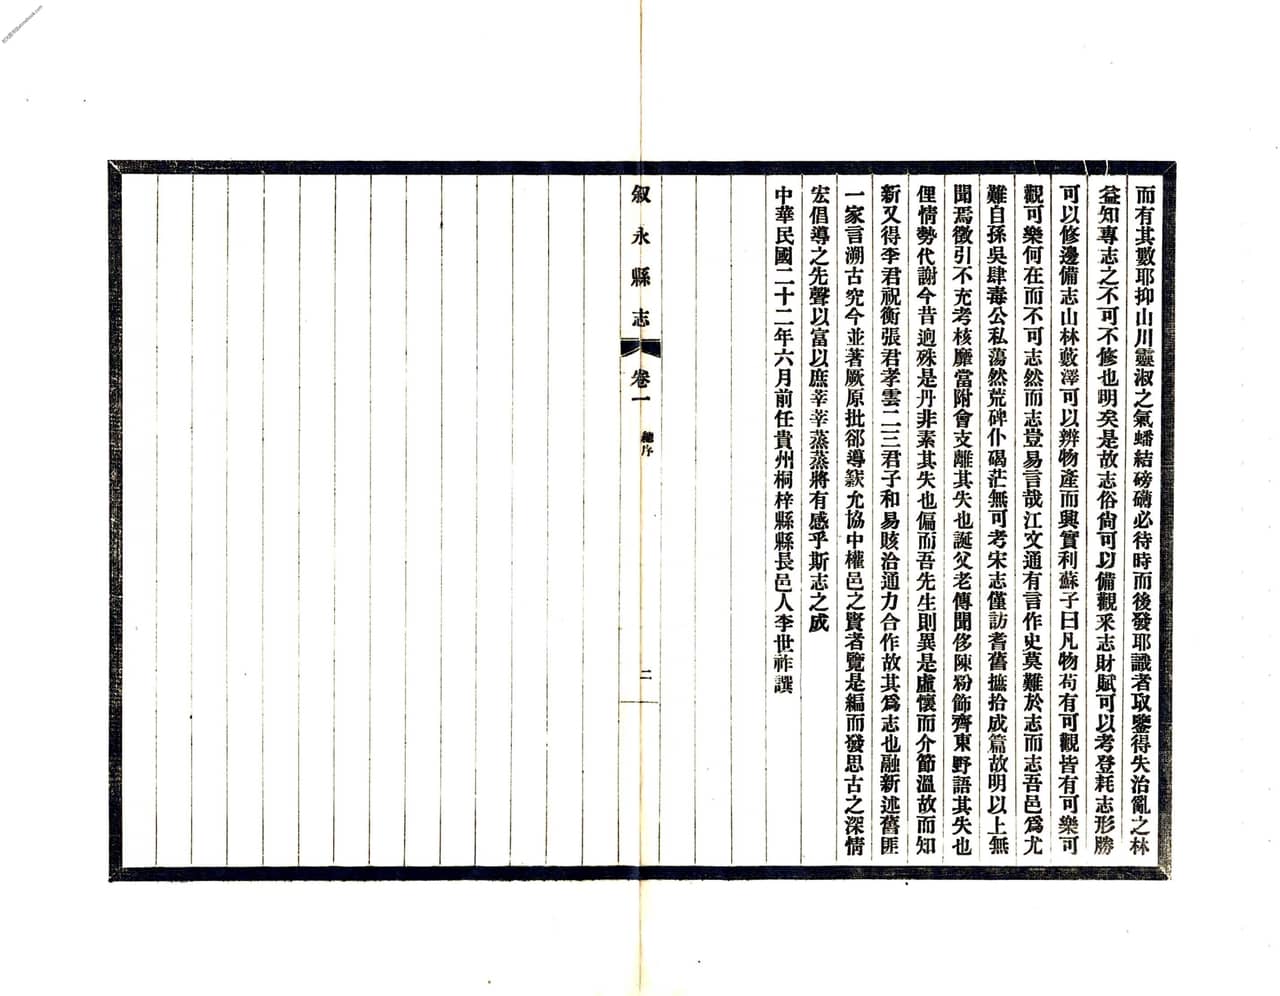 而有其數耶抑山川靈淑之氣蟠結磅礴必待時而後發耶識者取鑒得失治亂之林
益知專志之不可不修也明矣是故志俗尙可以備觀采志財賦可以考登耗志形勝
可以修邊備志山林藪澤可以辨物產而興實利蘇子曰凡物茍有可觀皆有可樂可
觀可樂何在而不可志然而志豈易言哉江文通有言作史莫難於志而志吾邑爲尤
難自孫吳肆毒公私蕩然荒碑仆碣茫無可考宋志僅訪耆舊摭拾成篇故明以上無
聞焉徵引不充考核靡當附會支離其失也誕父老傳聞侈陳粉飾齊東野語其失也
俚情勢代謝今昔逈殊是丹非素其失也偏而吾先生則異是虛懷而介節溫故而知
新又得李君祝衡張君孝雲二三君子和易賅洽通力合作故其爲志也融新述舊匪
一家言溯古究今並著厥原批郤導窾允協中權邑之賢者覽是編而發思古之深情
宏倡導之先聲以富以庶莘莘蒸蒸將有感乎斯志之成
中華民國二十二年六月前任貴州桐梓縣縣長邑人李世祚譔
叙永縣志 卷一 總序 二